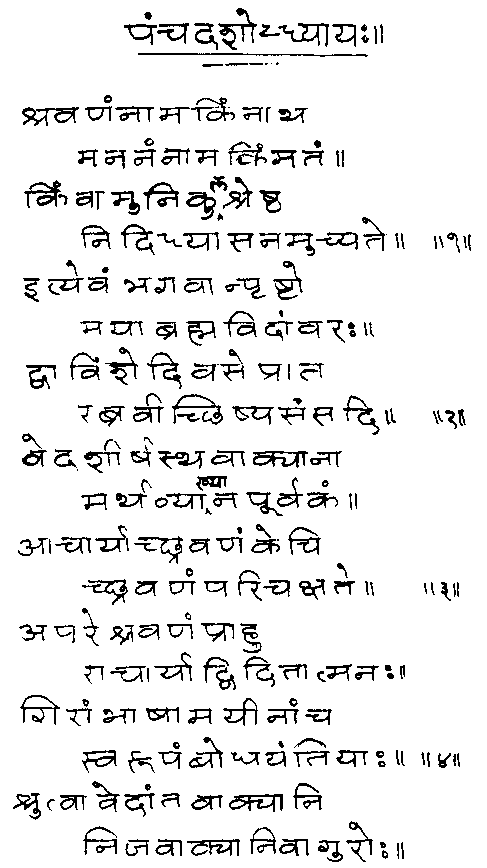 पंचदशोऽध्यायः॥
श्रवणंनामकिंनाथ
मननंनामकिंमतं॥
किंवामुनिकुलश्रेष्ठ
निदिध्यासनमुच्यते॥ ॥१॥
इत्येवंभगवान्पृष्टो
मयाब्रह्मविदांवरः॥
द्वाविंशेदिवसेप्रात
रब्रवीच्छिष्यसंसदि॥ ॥२॥
वेदशीर्षस्थवाक्याना
मर्थव्याख्यानपूर्वकं॥
आचार्याच्छ्रवणंकेचि
च्छ्रवणंपरिचक्षते॥ ॥३॥
अपरेश्रवणंप्राहु
राचार्याद्विदितात्मनः॥
गिरांभाषामयीनांच
स्वरूपंबोधयंतियाः॥ ॥४॥
श्रुत्वावेदांतवाक्यानि
निजवाक्यानिवागुरोः॥